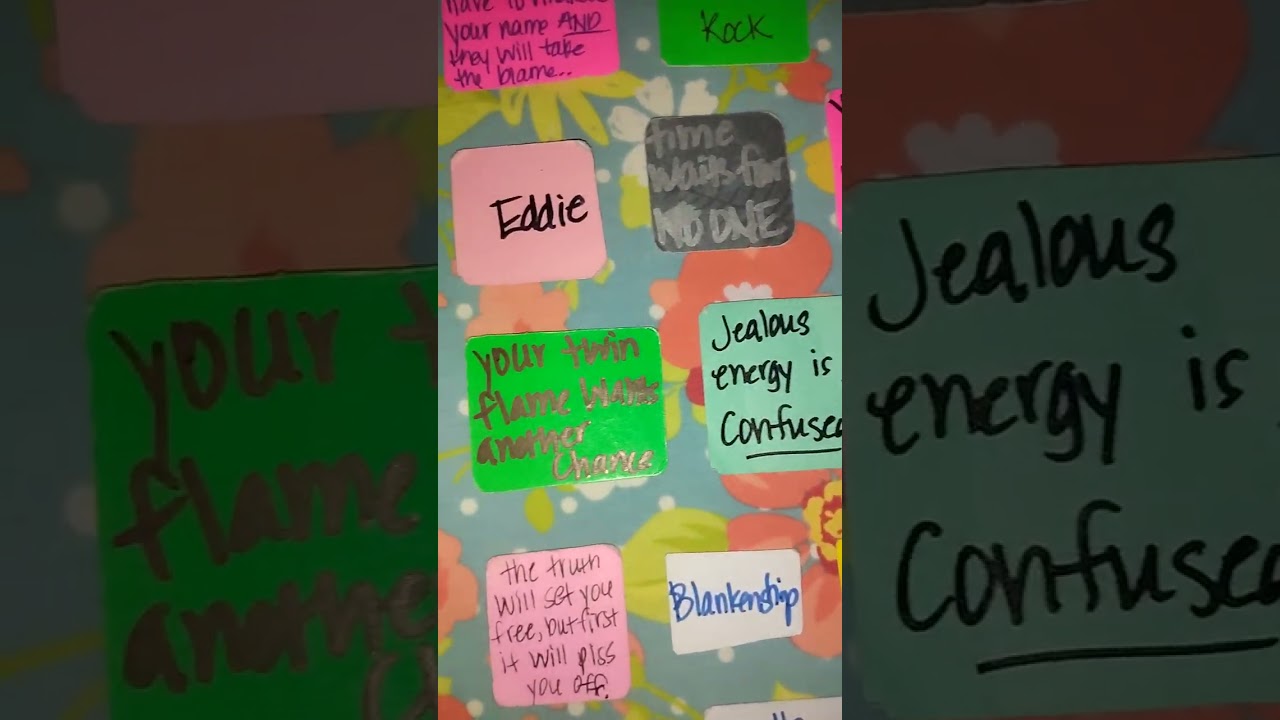 your name AND
they will take
the blame...
Rock
Eddie
time
waits for
NO ONE
your twin
flame wants
another
Chance
Jealous
energy is
Confused
the truth
will set you
free, but first
it will piss
you off.
Blankenship
your
flame
another
Jealous
energy is
Confused